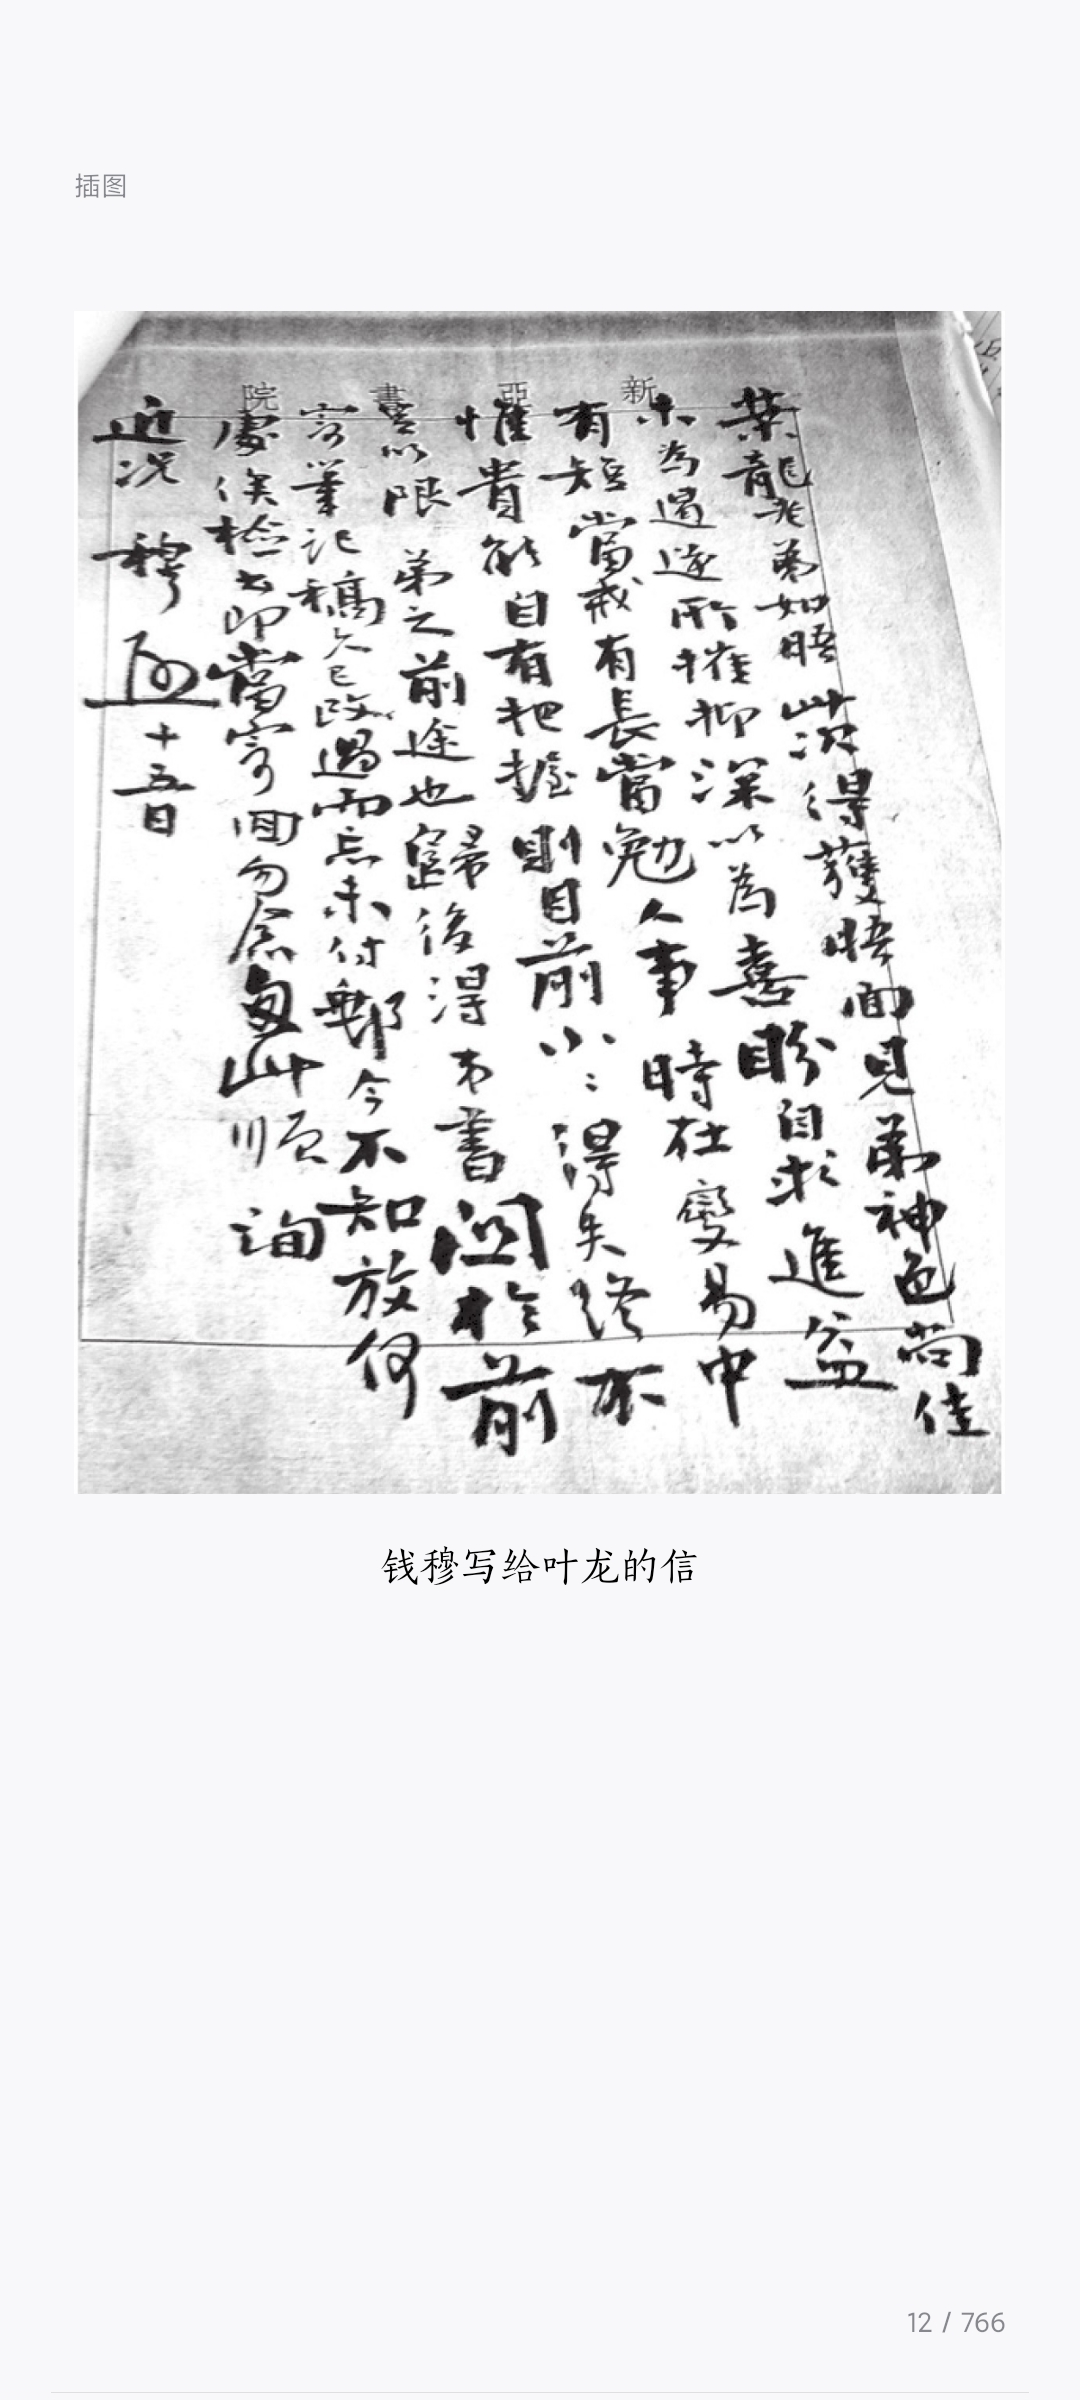 插图
新亞書院
葉龍老弟如晤此次得獲晤面見弟神色尚佳
未為過逆所摧抑深以為喜盼自求進益
有短當戒有長當勉人事時在變易中
惟貴能自有把握則目前小小得失終不
足以限弟之前途也歸後得來書關於前
寄筆記稿久已改過而忘未付郵今不知放何
處俟檢出即當寄回勿念匆此順詢
近況 穆 啟 十五日
钱穆写给叶龙的信
12 / 766